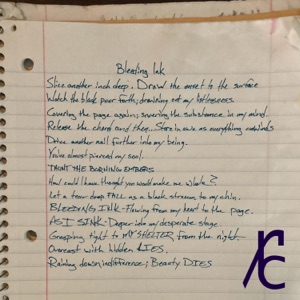 Bleeding Ink
Slice another inch deep. Draw the onset to the surface
Watch the black pour forth; draining out my
Covering the page again; smearing the substance in my mind.
Release the chord and then... Store in awe as everything unwinds
Drive another nail further into my being.
You've almost pierced my soul.
TAUNT THE BURNING EMBERS
How could I have thought you would make me whole?
Let a tear drop FALL as a black stream to my chin.
BLEEDING INK - Flowing from my heart to the page.
AS I SINK - Deeper into my desperate stage.
Grasping tight to MY SHELTER from the night
Overcast with hidden LIES.
Raining down indifference; Beauty DIES
rc